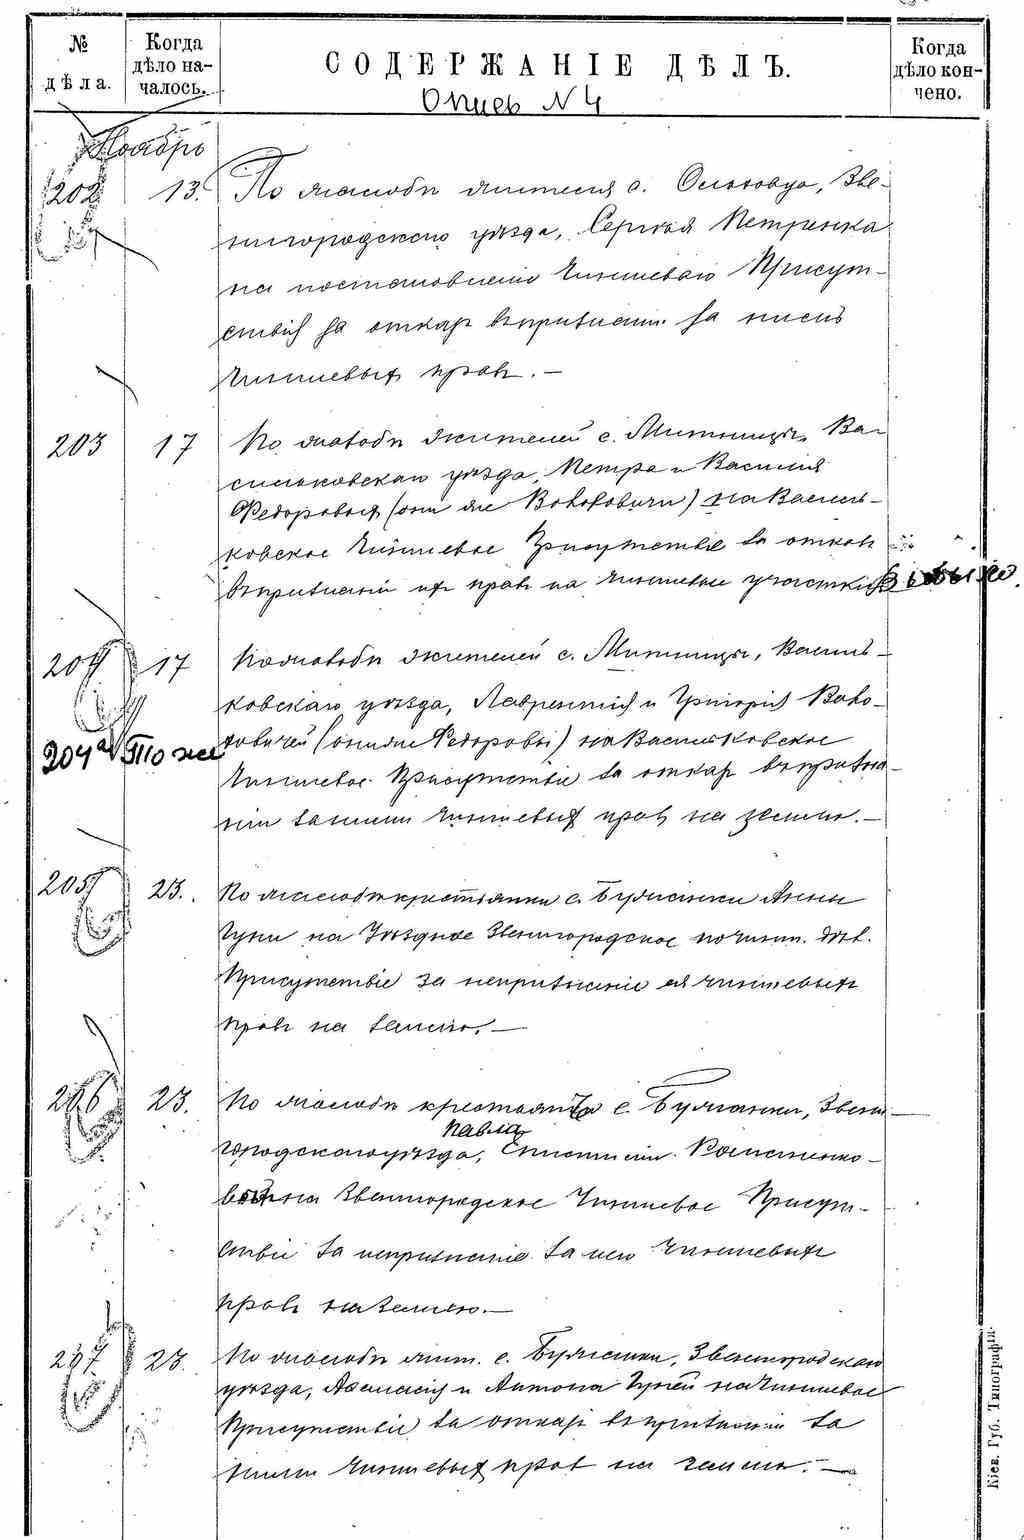 № дѣла.
Когда дѣло началось.
СОДЕРЖАНІЕ ДѢЛЪ.
Когда дѣло кончено.
Опись №4
Ноябрь
202 13. По жалобѣ жителя с. , Зве-
нигородского уѣзда, Сергѣя Петренка
на постановленіе Чиншеваго Присут-
ствія за отказъ въ признаніи за нимъ
Чиншевыхъ правъ.—
203 17 По жалобѣ жителей с. Митницы, Ва-
сильковскаго уѣзда, Петра и Василія
Федоровыхъ (они же ) на Василь-
ковское Чиншевое Присутствіе за отказъ
въ признаніи ихъ правъ на чиншевые участки
204 17 По жалобѣ жителей с. Митницы, Василь-
ковскаго уѣзда, Лаврентія и Григорія
(они же Федоровы) на Васильковское
204а То же
Чиншевое Присутствіе за отказъ въ призна-
ніи за ними чиншевыхъ правъ на землю.—
205 23. По жалобѣ крестьянки с. Бужанки Анны
на Уѣздное Звенигородское по чинш. дѣл.
Присутствіе за непризнаніе ея чиншевыхъ
правъ на землю.—
206 23. По жалобѣ с. Бужанки, Звени-
Павла
городского уѣзда,
на Звенигородское Чиншевое Присут-
ствіе за непризнаніе за нею Чиншевыхъ
правъ на землю.—
207 23. По жалобѣ жит. с. Бужанки, Звенигородскаго
уѣзда, Афанасія и Антона на Чиншевое
Присутствіе за отказъ въ признаніи за
ними Чиншевыхъ правъ на землю.—
Кіев. Губ. Типографія.